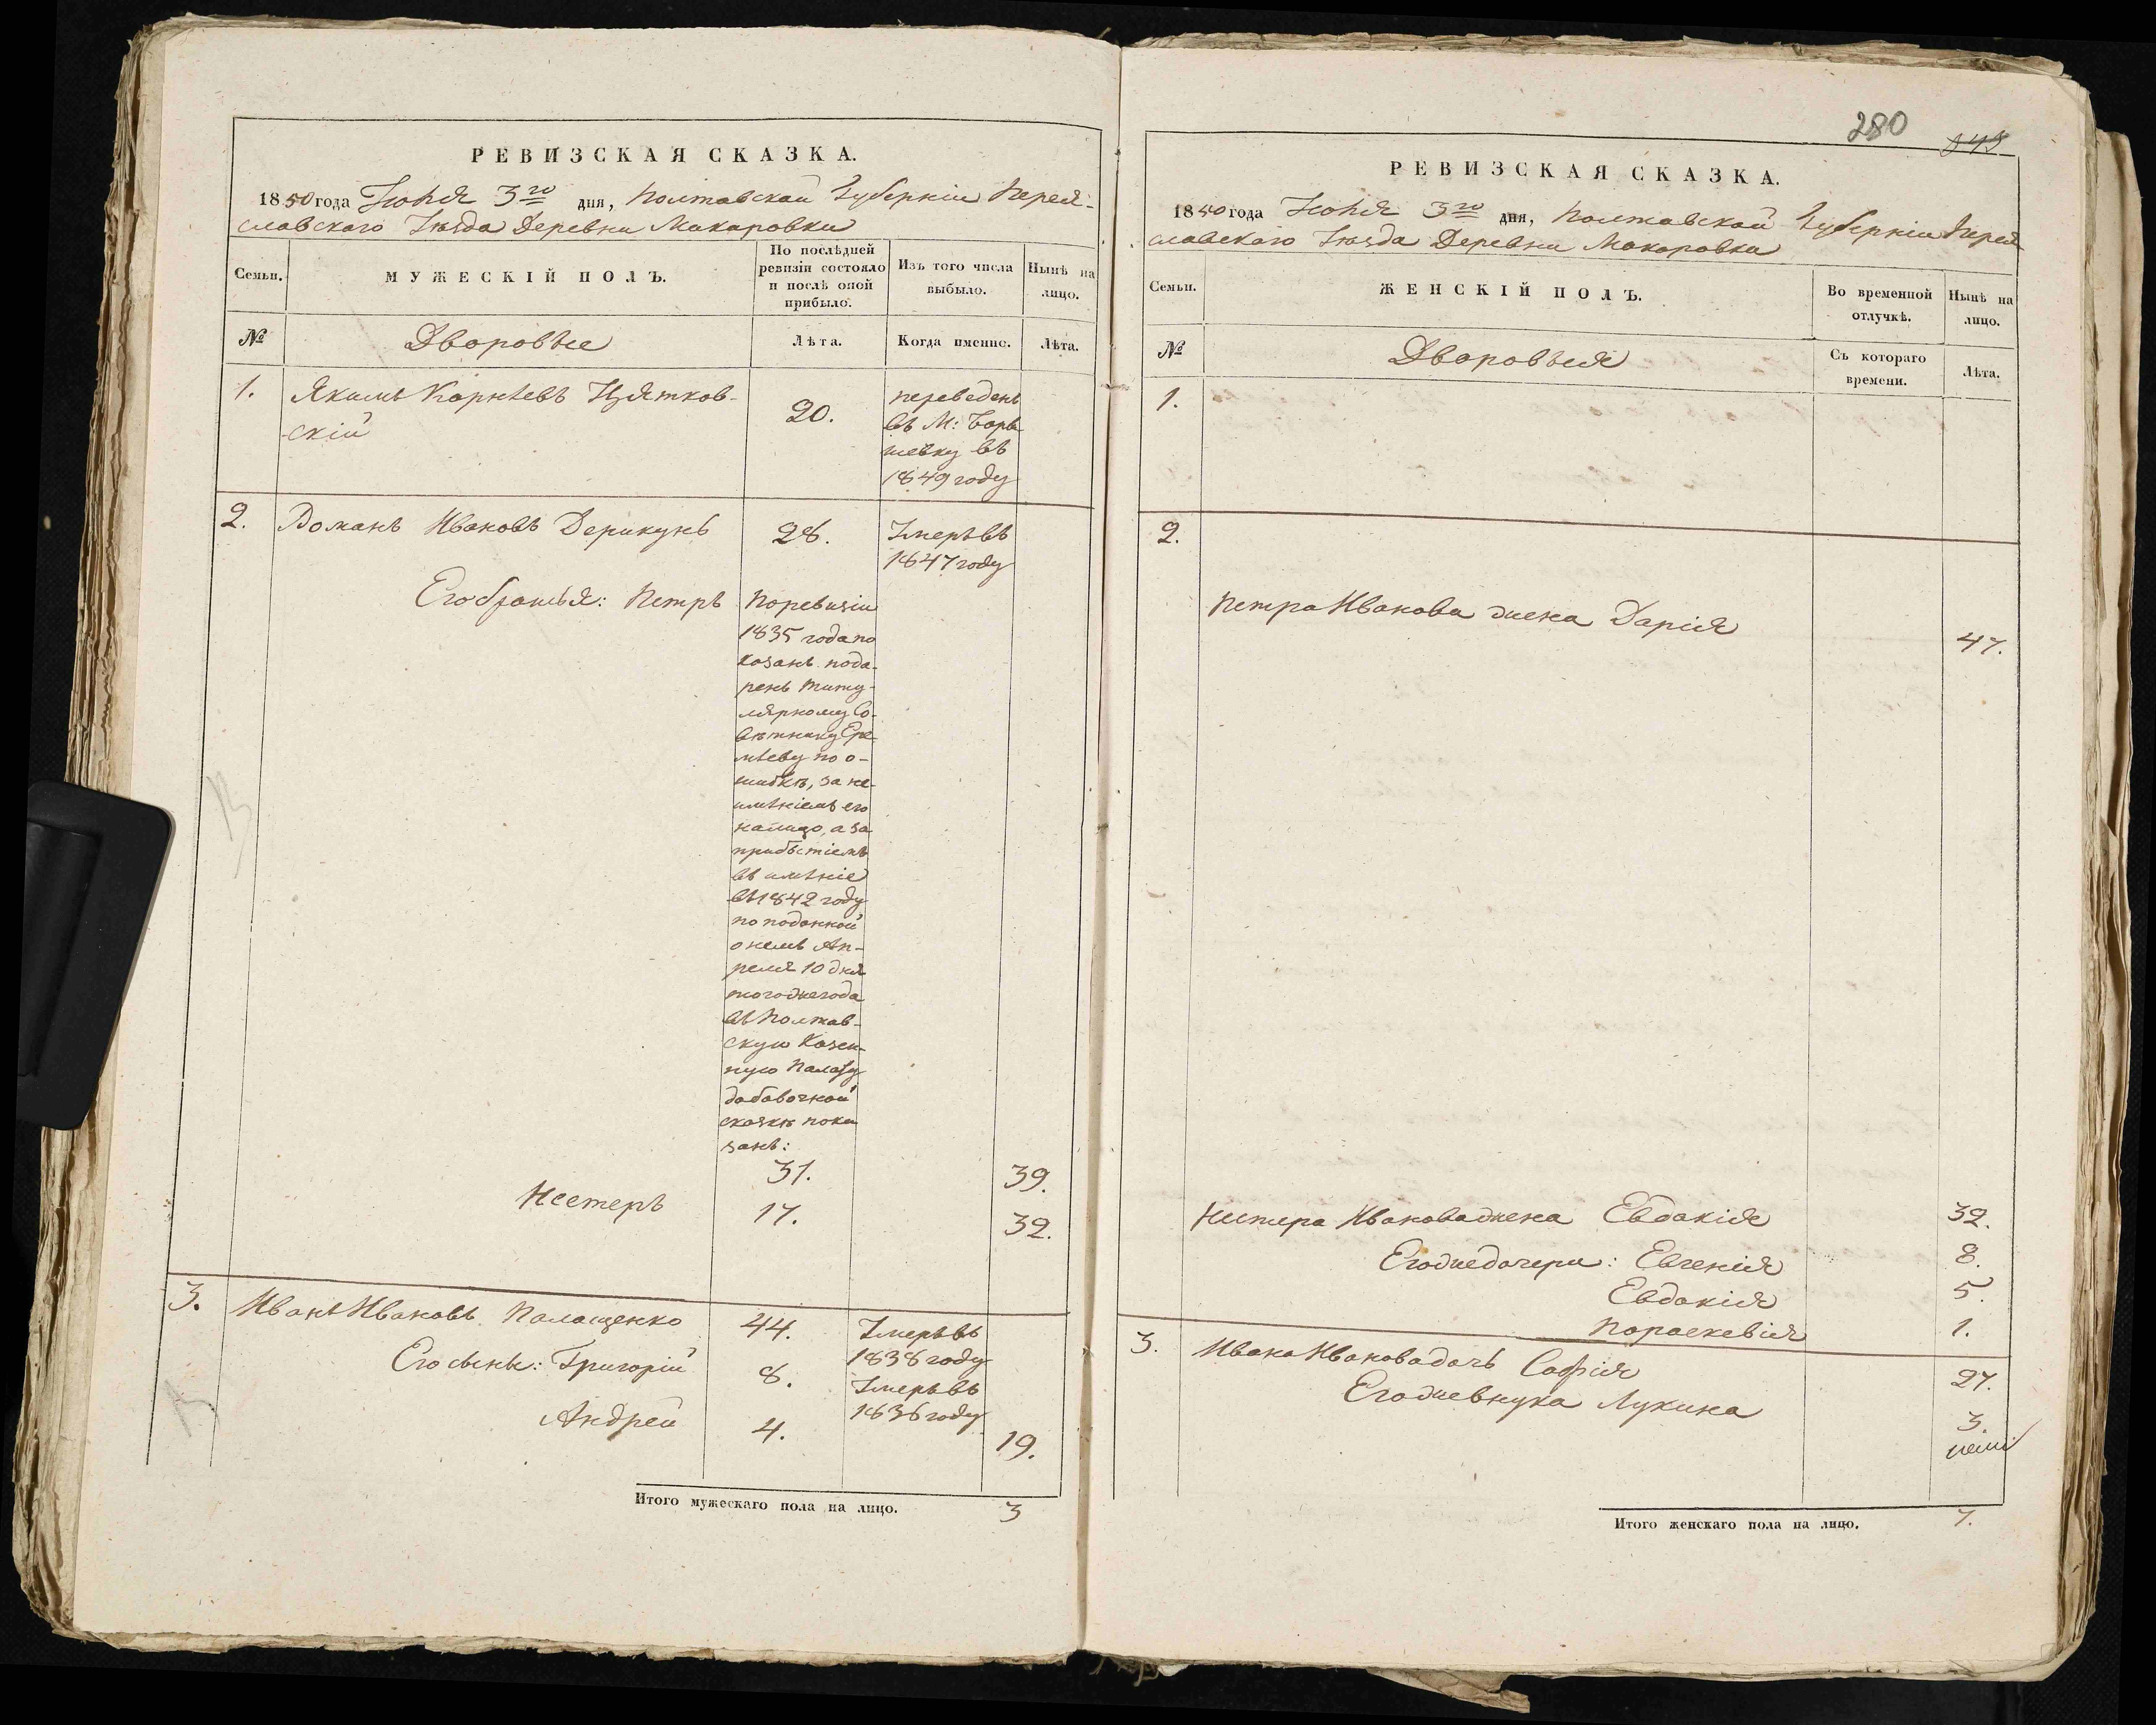 РЕВИЗСКАЯ СКАЗКА.
1850 года Июня 3го дня, Полтавской Губерніи Перея-
славскаго Уѣзда Деревни Макаровки
Семьи.
МУЖЕСКІЙ ПОЛЪ.
По послѣдней
ревизіи состояло
и послѣ оной
прибыло.
Изъ того числа
выбыло.
Нынѣ на
лицо.
№
Дворовые
Лѣта.
Когда именно.
Лѣта.
1.
Якимъ Корнѣевъ Цятков-
-скій
20.
переведенъ
въ М:
въ
1849 году
2.
Романъ Ивановъ Дерикунъ
28.
Умеръ въ
1847 году
Его братья: Петръ
По ревизіи
1835 года по
казанъ пода-
ренъ титу-
лярному Со-
вѣтнику Ере-
мѣеву по о-
шибкѣ, за не-
имѣніемъ его
налицо, а за
прибытіемъ
въ имѣніе
въ 1842 году
по поданной
о немъ Ап-
реля 10 дня
того же года
въ Полтав-
скую Казен-
ную Палату
добавочной
сказкѣ пока
занъ:
31.
39.
Нестеръ
17.
32.
3.
Иванъ Ивановъ Палащенко
44.
Умеръ въ
1838 году
Его сыны: Григорій
8.
Умеръ въ
1836 году
Андрей
4.
19.
Итого мужескаго пола на лицо.
3
280
849
РЕВИЗСКАЯ СКАЗКА.
1850 года Июня 3го дня, Полтавской Губерніи Перея
славскаго Уѣзда Деревни Макаровки
Семьи.
ЖЕНСКІЙ ПОЛЪ.
Во временной
отлучкѣ.
Нынѣ на
лицо.
№
Дворовыя
Съ котораго
времени.
Лѣта.
1.
2.
Петра Иванова жена Дарія
47.
Нестера Иванова жена Евдокія
32.
Его же дочери: Евгенія
8.
Евдокія
5.
Параскевія
1.
3.
Ивана Иванова дочь Софія
27.
Его же внука Лукина
3.
Итого женскаго пола на лицо.
7.